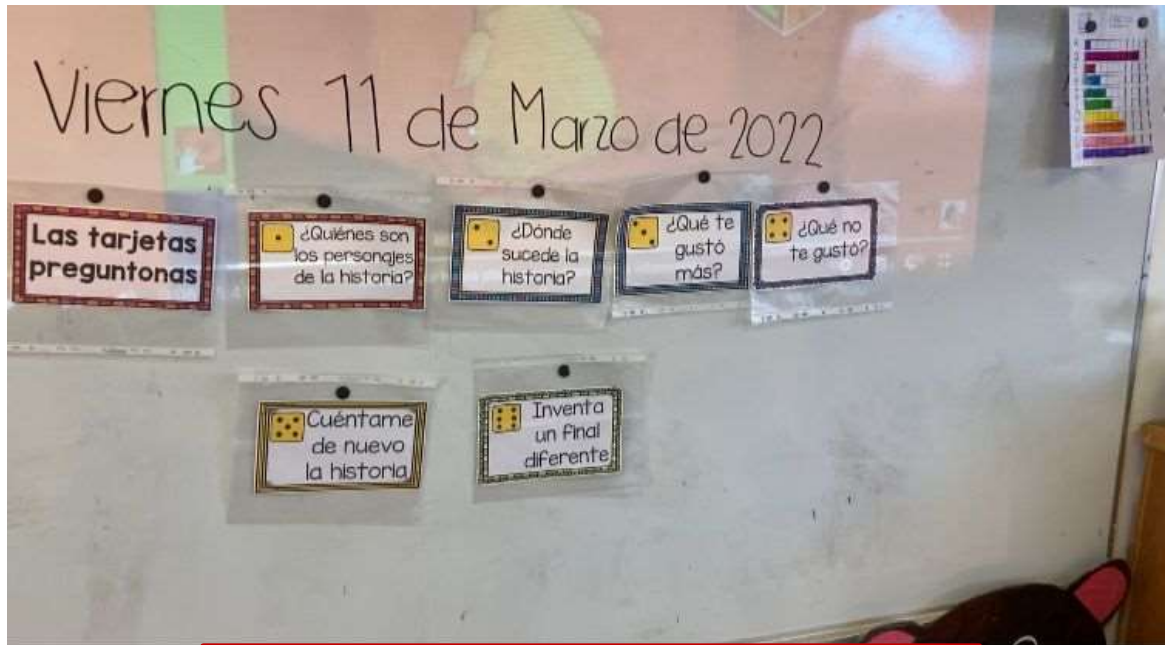 Viernes 11 de Marzo de 2022
Las tarjetas
preguntonas
¿Quiénes son
los personajes
de la historia?
¿Dónde
sucede la
historia?
¿Qué te
gustó
más?
¿Qué no
te gustó?
Cuéntame
de nuevo
la historia
Inventa
un final
diferente